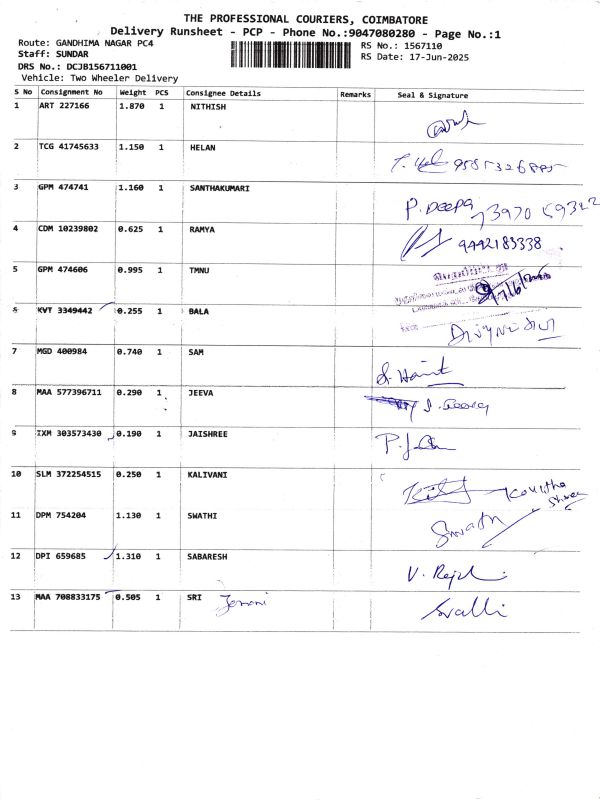 THE PROFESSIONAL COURIERS, COIMBATORE
Delivery Runsheet - PCP - Phone No.:9047080280 - Page No.:1
Route: GANDHIMA NAGAR PC4
RS No.: 1567110
Staff: SUNDAR
RS Date: 17-Jun-2025
DRS No.: DCJB156711001
Vehicle: Two Wheeler Delivery
S No Consignment No Weight PCS Consignee Details Remarks Seal & Signature
1 ART 227166 1.870 1 NITHISH
2 TCG 41745633 1.150 1 HELAN
3 GPM 474741 1.160 1 SANTHAKUMARI P. DEEPA
4 CDM 10239802 0.625 1 RAMYA 9442183338
5 GPM 474606 0.995 1 TMNU
6 KVT 3349442 0.255 1 BALA
7 MGD 400984 0.740 1 SAM
8 MAA 577396711 0.290 1 JEEVA
9 IXM 303573430 0.190 1 JAISHREE
10 SLM 372254515 0.250 1 KALIVANI
11 DPM 754204 1.130 1 SWATHI Swathi
12 DPI 659685 1.310 1 SABARESH
13 MAA 708833175 0.505 1 SRI Valli